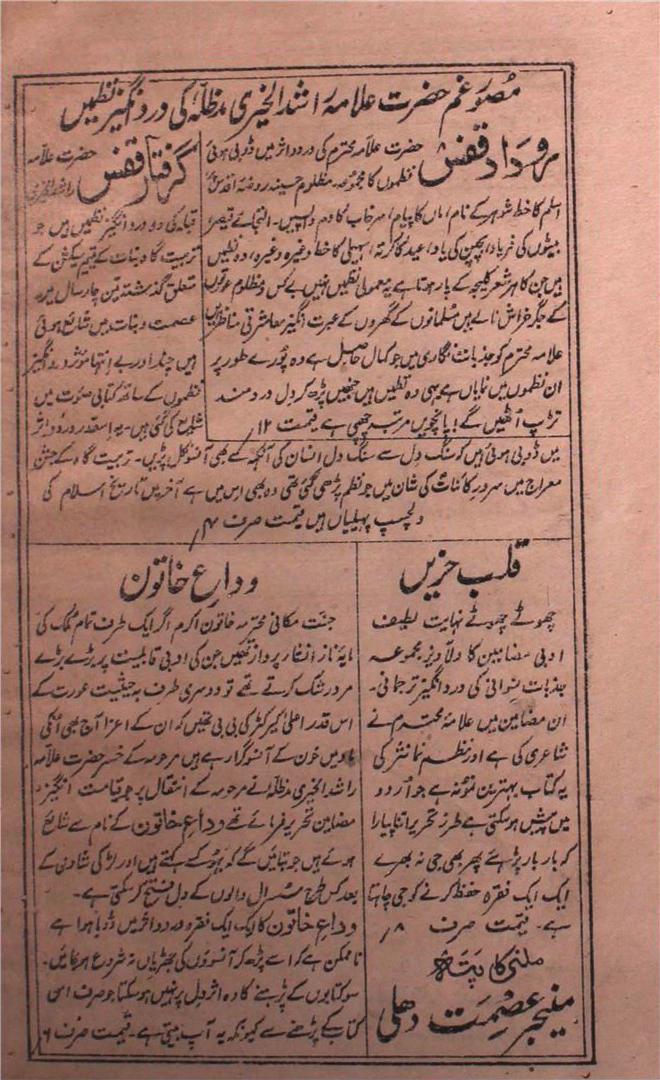 مصور غم حضرت علامہ راشد الخیری مدظلہ کی درد انگیز نظمیں
روداد قفس
حضرت علامہ محترم کی درد و اثر میں ڈوبی ہوئی
نظموں کا مجموعہ مظلوم حسینہ روضہ اقدس
اسلم کا خط شوہر کے نام، اماں کا پیام، مرغاب کا دم واپسیں۔ التجائے قیصر
بیٹوں کی فریاد، بچپن کی یاد، عید کا کرتہ، سہیلی کا خط وغیرہ وغیرہ، وہ نظمیں
ہیں جن کا ہر شعر کلیجہ کے پار ہوتا ہے یہ معمولی نظمیں نہیں بے کس و مظلوم عورتوں
کے جگر خراش نالے ہیں مسلمانوں کے گھروں کے عبرت انگیز معاشرتی مناظر ہیں
علامہ محترم کو جذبات نگاری میں جو کمال حاصل ہے وہ پورے طور پر
ان نظموں میں نمایاں ہے یہی وہ نظمیں ہیں جنہیں پڑھ کر دل دردمند
تڑپ اٹھیں گے! پانچویں مرتبہ چھپی ہے قیمت ۱۲؍
گرفتار قفس
حضرت علامہ
راشد الخیری
قبلہ کی دو درد انگیز نظمیں ہیں جو
تربیت گاہ بنات کے یتیم سیکشن کے
متعلق گذشتہ تین چار سال میں
عصمت و بنات میں شائع ہوئی
ہیں چند اور بے انتہا مؤثر درد انگیز
نظموں کے ساتھ کتابی صورت میں
شایع کی گئی ہیں۔ یہ اسقدر درد و اثر
میں ڈوبی ہوئی ہیں کہ سنگ دل سے سنگ دل انسان کی آنکھ کے بھی آنسو نکل پڑیں۔ تربیت گاہ کے جشن
معراج میں سرور کائنات کی شان میں جو نظم پڑھی گئی تھی وہ بھی اس میں ہے آخر میں تاریخ اسلام کی
دلچسپ پہیلیاں ہیں قیمت صرف ۴؍
قلب حزیں
چھوٹے چھوٹے نہایت لطیف
ادبی مضامین کا دلآویز مجموعہ
جذبات نسوانی کی درد انگیز ترجمانی۔
ان مضامین میں علامہ محترم نے
شاعری کی ہے اور نظم نما نثر کی
یہ کتاب بہترین نمونہ ہے جو اردو
میں پیش ہو سکتی ہے طرز تحریر اتنا پیارا
کہ بار بار پڑھئے پھر بھی جی نہ بھرے
ایک ایک فقرہ حفظ کرنے کو جی چاہتا
ہے۔ قیمت صرف ۸؍
ملنے کا پتہ
منیجر عصمت دہلی
وداع خاتون
جنت مکانی محترمہ خاتون اکرم اگر ایک طرف تمام ملک کی
مایہ ناز انشا پرداز تھیں جن کی ادبی قابلیت پر بڑے بڑے
مرد رشک کرتے تھے تو دوسری طرف بہ حیثیت عورت کے
اس قدر اعلیٰ کیرکٹر کی بی بی تھیں کہ ان کے اعزا آج بھی انکی
یاد میں خون کے آنسو گرا رہے ہیں مرحومہ کے خسر حضرت علامہ
راشد الخیری مدظلہ نے مرحومہ کے انتقال پر جو قیامت انگیز
مضامین تحریر فرمائے تھے وداع خاتون کے نام سے شائع
ہوئے ہیں جو بتائیں گے کہ بہو کسے کہتے ہیں اور لڑکی شادی کے
بعد کس طرح سسرال والوں کے دل فتح کر سکتی ہے۔
وداع خاتون کا ایک ایک فقرہ درد و اثر میں ڈوبا ہوا ہے
ناممکن ہے کہ اسے پڑھ کر آنسوؤں کی جھڑیاں نہ شروع ہو جائیں۔
سو کتابوں کے پڑھنے کا وہ اثر دل پر نہیں ہو سکتا جو صرف اس
کتاب کے پڑھنے سے کیونکہ یہ آپ بیتی ہے۔ قیمت صرف ۶؍